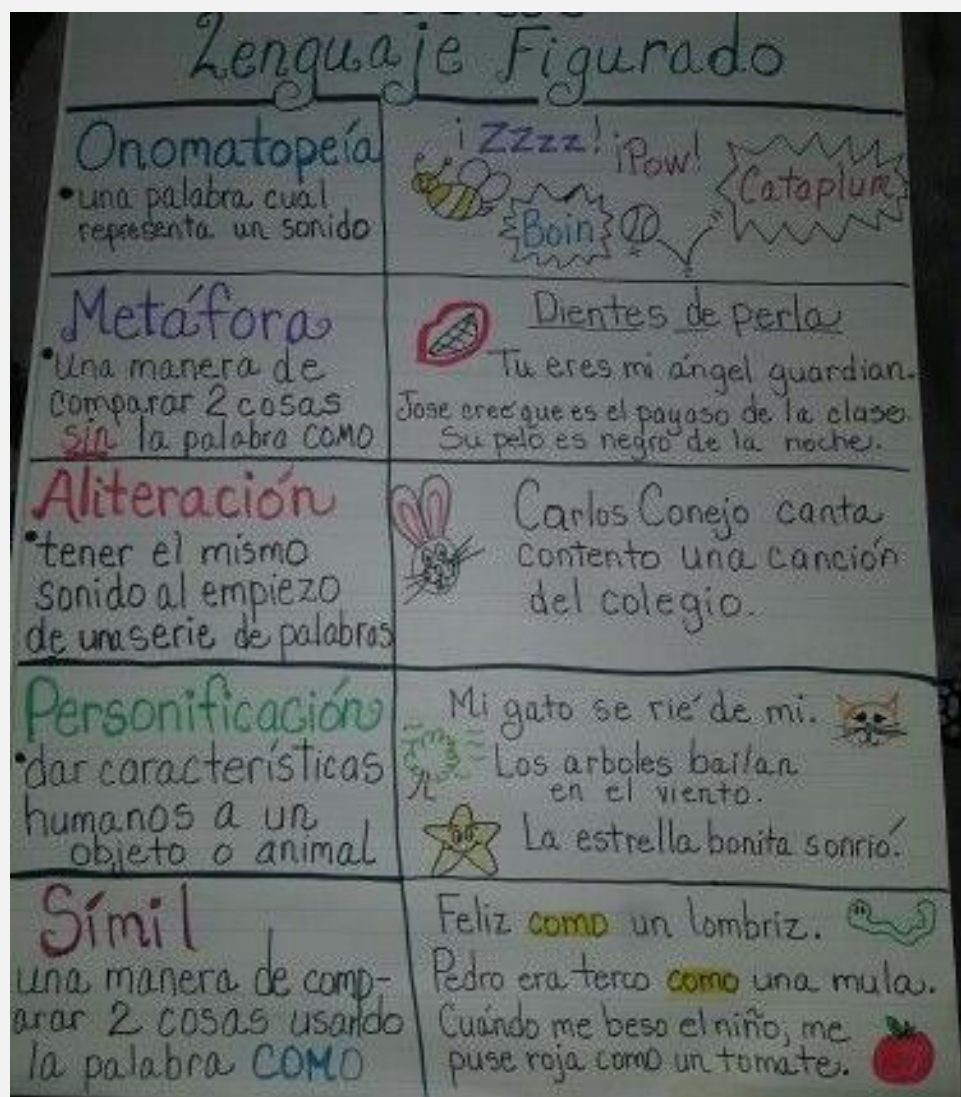 Lenguaje Figurado
Onomatopeía
• una palabra cual
representa un sonido
¡Zzzz!
¡Pow!
Cataplum
Boin
Metáfora
• Una manera de
comparar 2 cosas
sin la palabra COMO
Dientes de perla
Tu eres mi ángel guardian.
Jose cree que es el payaso de la clase.
Su pelo es negro de la noche.
Aliteración
• tener el mismo
sonido al empiezo
de una serie de palabras
Carlos Conejo canta
contento una canción
del colegio.
Personificación
• dar características
humanos a un
objeto o animal
Mi gato se rié de mi.
Los arboles bailan
en el viento.
La estrella bonita sonrió.
Símil
una manera de comp-
arar 2 cosas usando
la palabra COMO
Feliz como un lombriz.
Pedro era terco como una mula.
Cuándo me beso el niño, me
puse roja como un tomate.